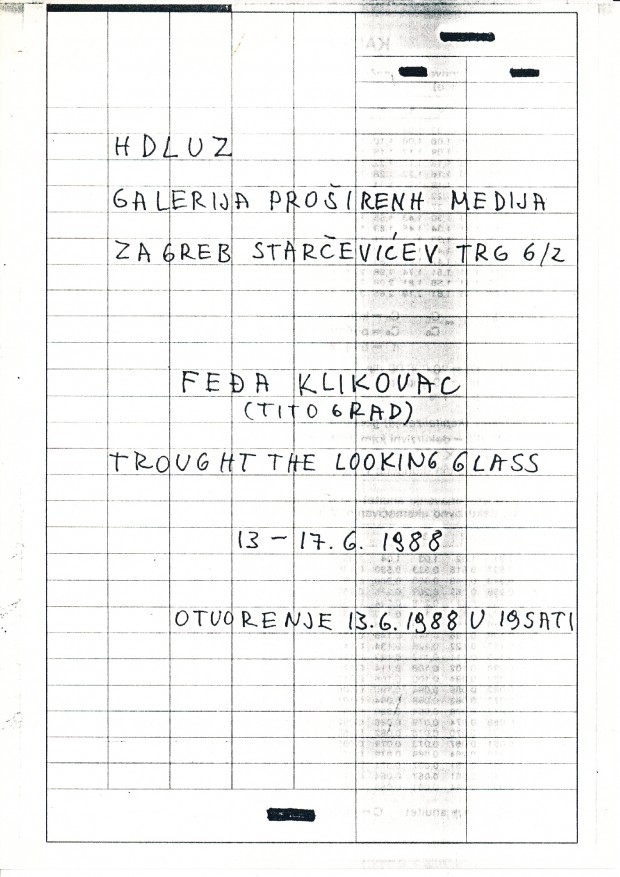 HDLUZ
GALERIJA PROŠIRENH MEDIJA
ZAGREB STARČEVIĆEV TRG 6/2
FEĐA KLIKOVAC
(TITOGRAD)
TROUGHT THE LOOKING GLASS
13 – 17. 6. 1988
OTVORENJE 13.6.1988 U 19 SATI